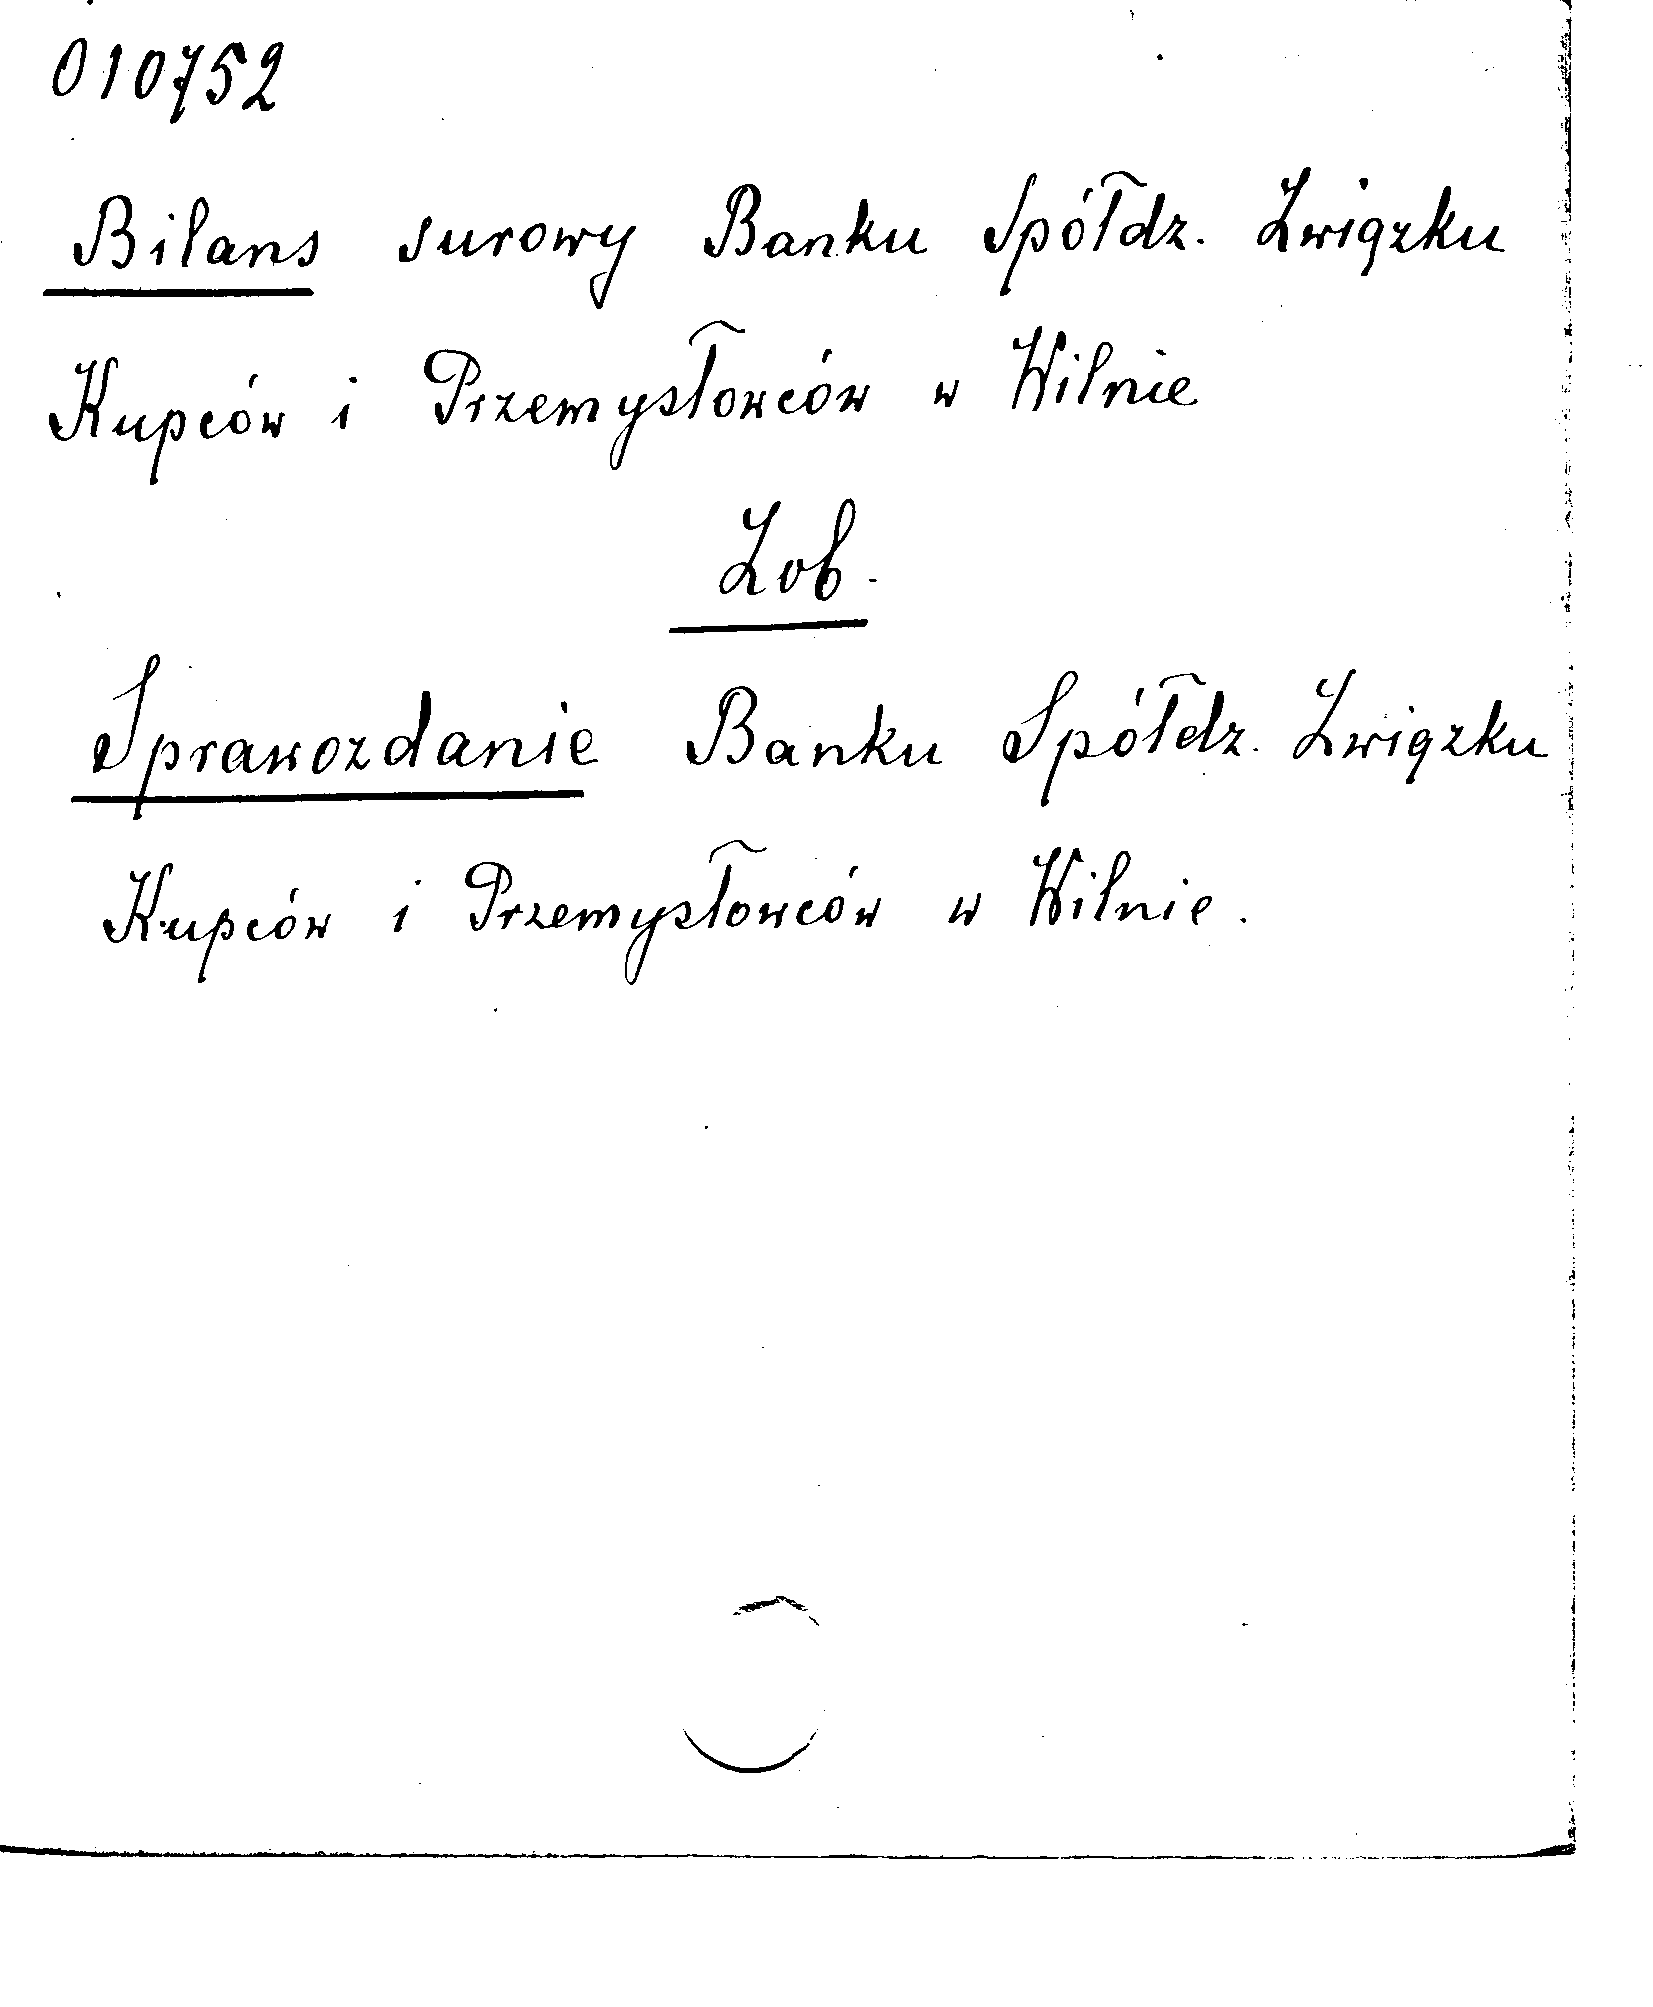 010752
Bilans surowy Banku Spółdz. Związku
Kupców i Przemysłowców w Wilnie
Zob.
Sprawozdanie Banku Spółdz. Związku
Kupców i Przemysłowców w Wilnie.